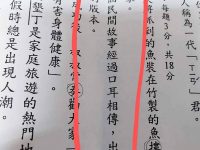 人稱為一代「」君
每題3分,共18分
的魚裝在竹製的魚摟
民間故事經過口耳相傳,出
的版本。
勸大家
害身體健康」。
墾丁是家庭旅遊的熱門地
假時總是出現人潮。